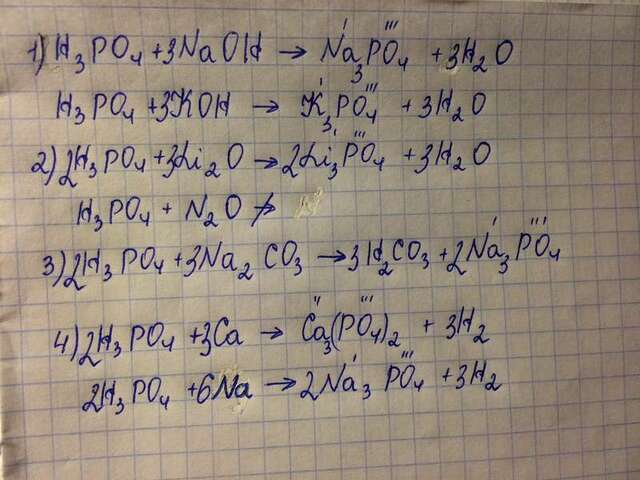 1) H₃PO₄ + 3NaOH → Na₃PO₄ + 3H₂O
H₃PO₄ + 3KOH → K₃PO₄ + 3H₂O
2) 2H₃PO₄ + 3Li₂O → 2Li₃PO₄ + 3H₂O
H₃PO₄ + N₂O ↛
3) 2H₃PO₄ + 3Na₂CO₃ → 3H₂CO₃ + 2Na₃PO₄
4) 2H₃PO₄ + 3Ca → Ca₃(PO₄)₂ + 3H₂
2H₃PO₄ + 6Na → 2Na₃PO₄ + 3H₂